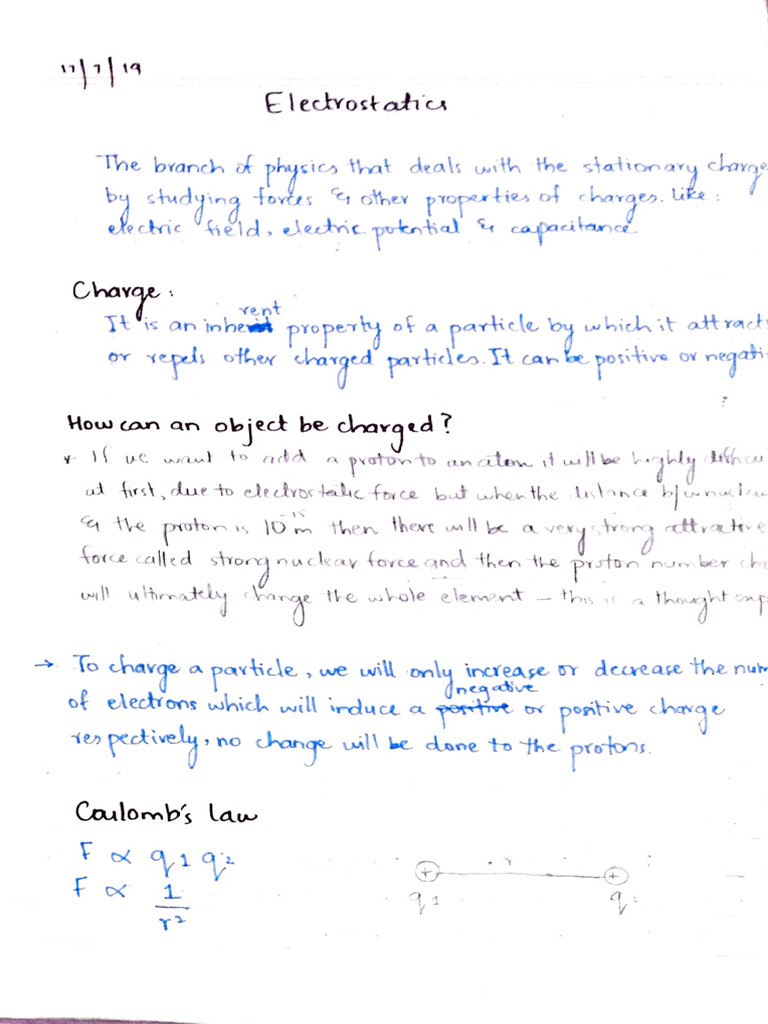 17/7/19
Electrostatics
The branch of physics that deals with the stationary charge
by studying forces & other properties of charges. Like:
electric field, electric potential & capacitance.
Charge:
It is an inherent property of a particle by which it attract
or repels other charged particles. It can be positive or negati
?
How can an object be charged?
* If we want to add a proton to an atom it will be highly
at first, due to electrostatic force but when the distance b/w nucleu
& the proton is 10⁻¹⁵m then there will be a very strong attractive
force called strong nuclear force and then the proton number cha
will ultimately change the whole element - this is a thought exp
→ To charge a particle, we will only increase or decrease the num
of electrons which will induce a ~~positive~~ negative or positive charge
respectively, no change will be done to the protons.
Coulomb's law
F ∝ q1 q2
F ∝ 1/r²
+ r +
q1 q2